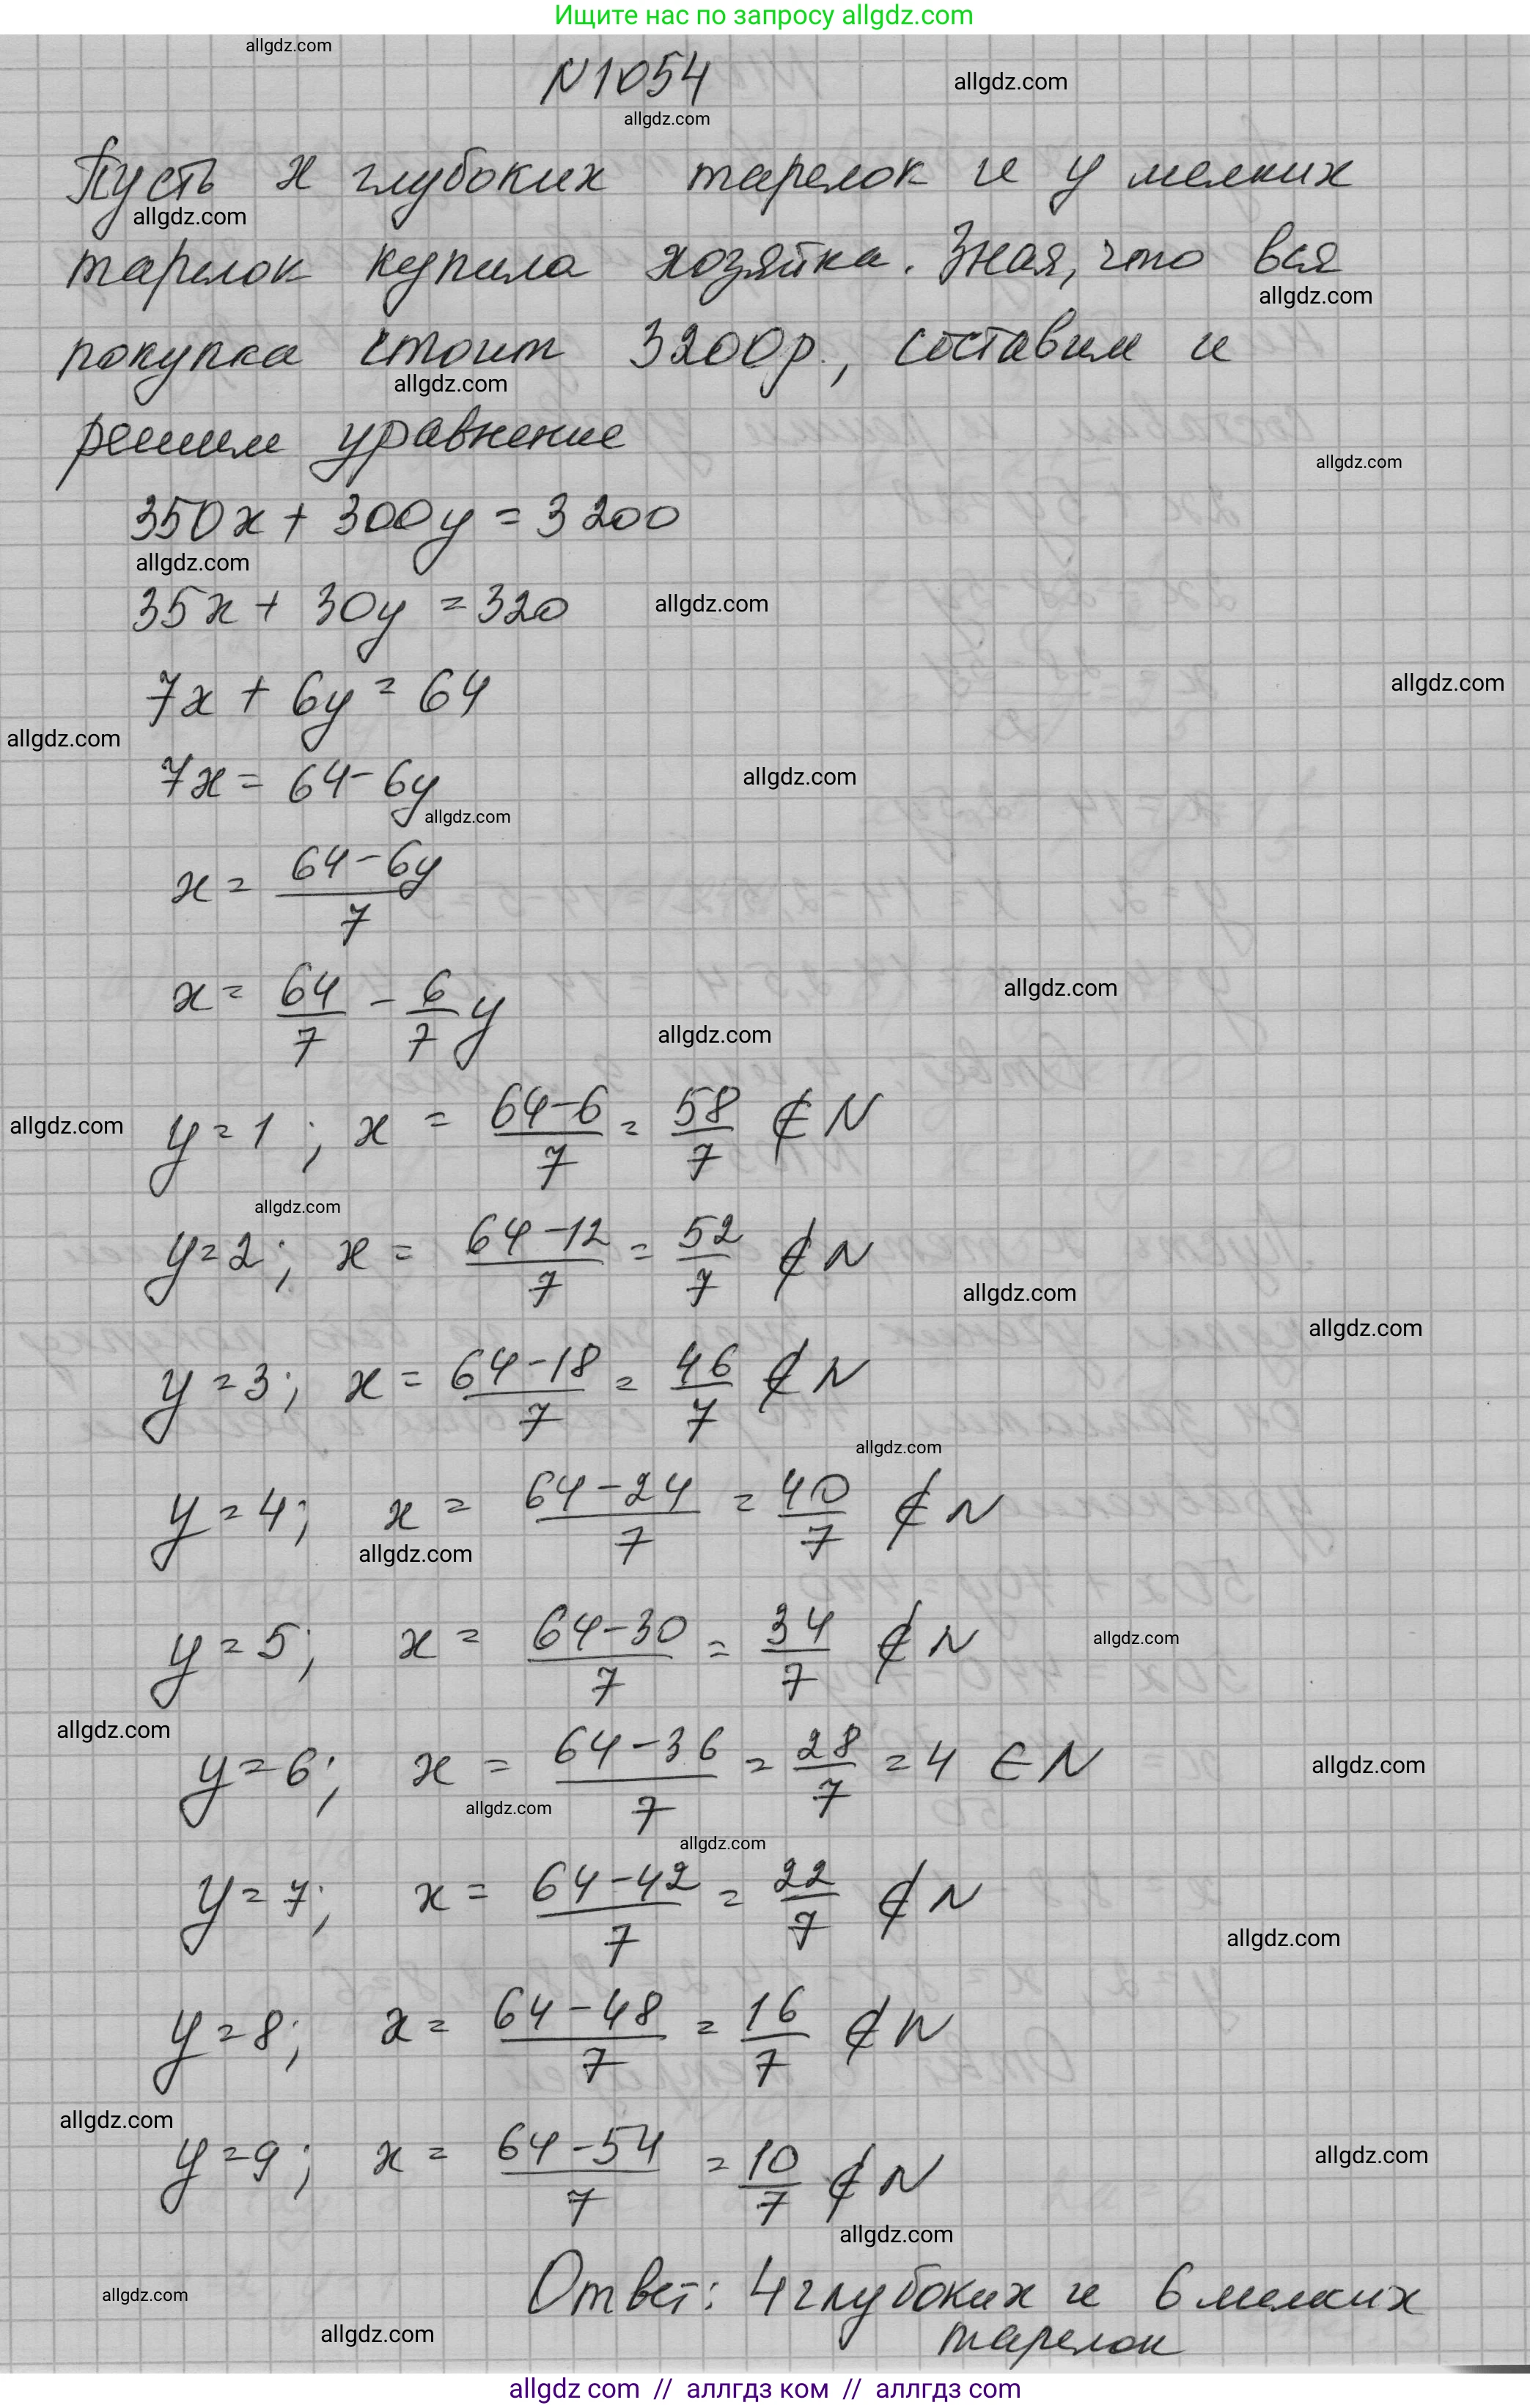 Ищите нас по запросу allgdz.com
allgdz.com
N1054
allgdz.com
allgdz.com
Пусть x глубоких тарелок и y мелких
allgdz.com
тарелок купила хозяйка. Зная, что вся
allgdz.com
покупка стоит 3200р., составим и
allgdz.com
решим уравнение
allgdz.com
350x + 300y = 3200
allgdz.com
35x + 30y = 320
allgdz.com
7x + 6y = 64
allgdz.com
allgdz.com
7x = 64 - 6y
allgdz.com
allgdz.com
x = (64 - 6y)/7
x = 64/7 - 6/7 y
allgdz.com
allgdz.com
y = 1; x = (64-6)/7 = 58/7 ∉ N
allgdz.com
allgdz.com
y = 2; x = (64-12)/7 = 52/7 ∉ N
allgdz.com
allgdz.com
y = 3; x = (64-18)/7 = 46/7 ∉ N
allgdz.com
y = 4; x = (64-24)/7 = 40/7 ∉ N
allgdz.com
y = 5; x = (64-30)/7 = 34/7 ∉ N
allgdz.com
allgdz.com
y = 6; x = (64-36)/7 = 28/7 = 4 ∈ N
allgdz.com
allgdz.com
allgdz.com
y = 7; x = (64-42)/7 = 22/7 ∉ N
allgdz.com
y = 8; x = (64-48)/7 = 16/7 ∉ N
allgdz.com
y = 9; x = (64-54)/7 = 10/7 ∉ N
allgdz.com
allgdz.com
Ответ: 4 глубоких и 6 мелких
allgdz.com
тарелок
allgdz.com
allgdz com // аллгдз ком // аллгдз com